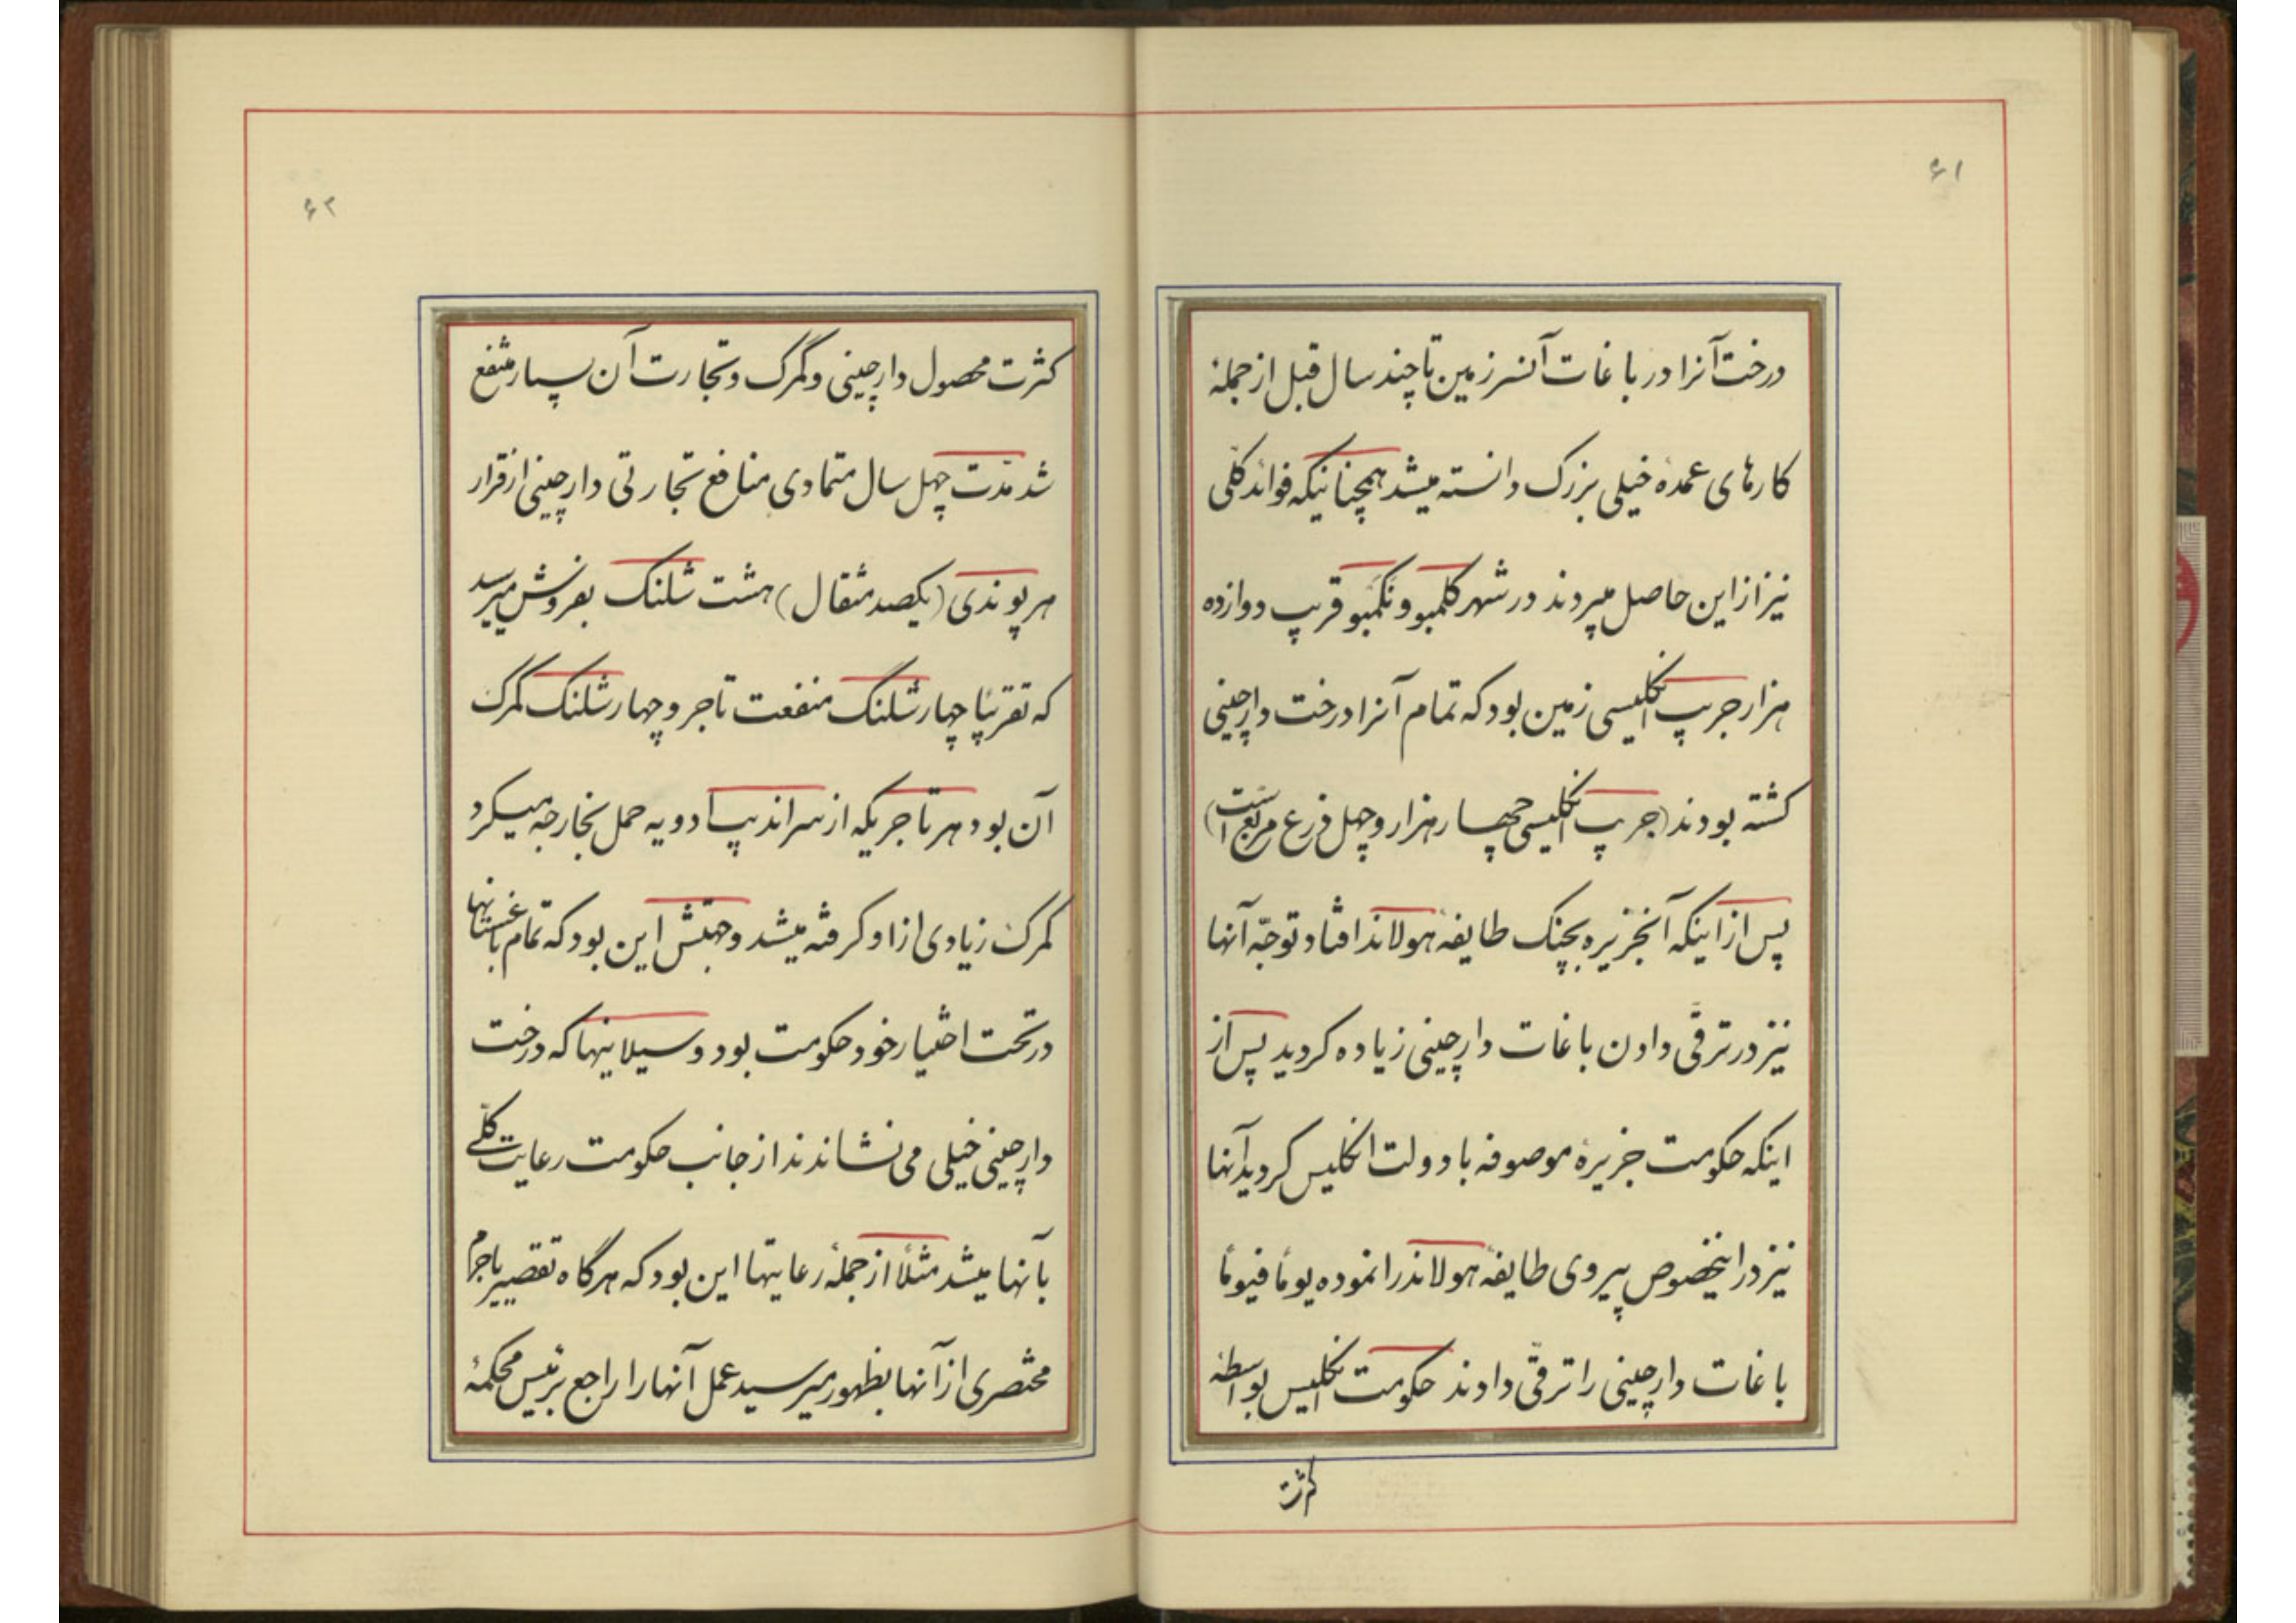 ۶۱
درخت آنرا در باغات آنسرزمین تا چند سال قبل از جملهٔ
کارهای عمدهٔ خیلی بزرک دانسته میشد همچنانیکه فوائد کلّی
نیز از این حاصل میبردند در شهر کلمبو و نکمبو قریب دوازده
هزار جریب انکلیسی زمین بود که تمام آنرا درخت دارچینی
کشته بودند (جریب انکلیسی چهار هزار و چهل ذرع مربع است)
پس از اینکه آنجزیره بچنک طایفهٔ هولاند افتاد توجّه آنها
نیز در ترقّی دادن باغات دارچینی زیاده کردید پس از
اینکه حکومت جزیرهٔ موصوفه با دولت انکلیس کردید آنها
نیز در اینخصوص پیروی طایفهٔ هولاندرا نموده یوماً فیوماً
باغات دارچینی را ترقّی دادند حکومت انکلیس بواسطهٔ
کثرت
۶۲
کثرت محصول دارچینی و کمرک و تجارت آن بسیار منتفع
شد مدّت چهل سال متمادی منافع تجارتی دارچینی از قرار
هر پوندی (یکصد مثقال) هشت شلنک بفروش میرسد
که تقریباً چهار شلنک منفعت تاجر و چهار شلنک کمرک
آن بود هر تاجریکه از سراندیپ ادویه حمل بخارجه میکرد
کمرک زیادی از او کرفته میشد و جهتش این بود که تمام باغستانها
در تحت اختیار خود حکومت بود و سیلانیها که درخت
دارچینی خیلی می نشاندند از جانب حکومت رعایت کلّے
بآنها میشد مثلاً از جملهٔ رعایتها این بود که هرگاه تقصیر یا جرم
مختصری از آنها بظهور میرسید عمل آنها را راجع برئیس محکمهٔ